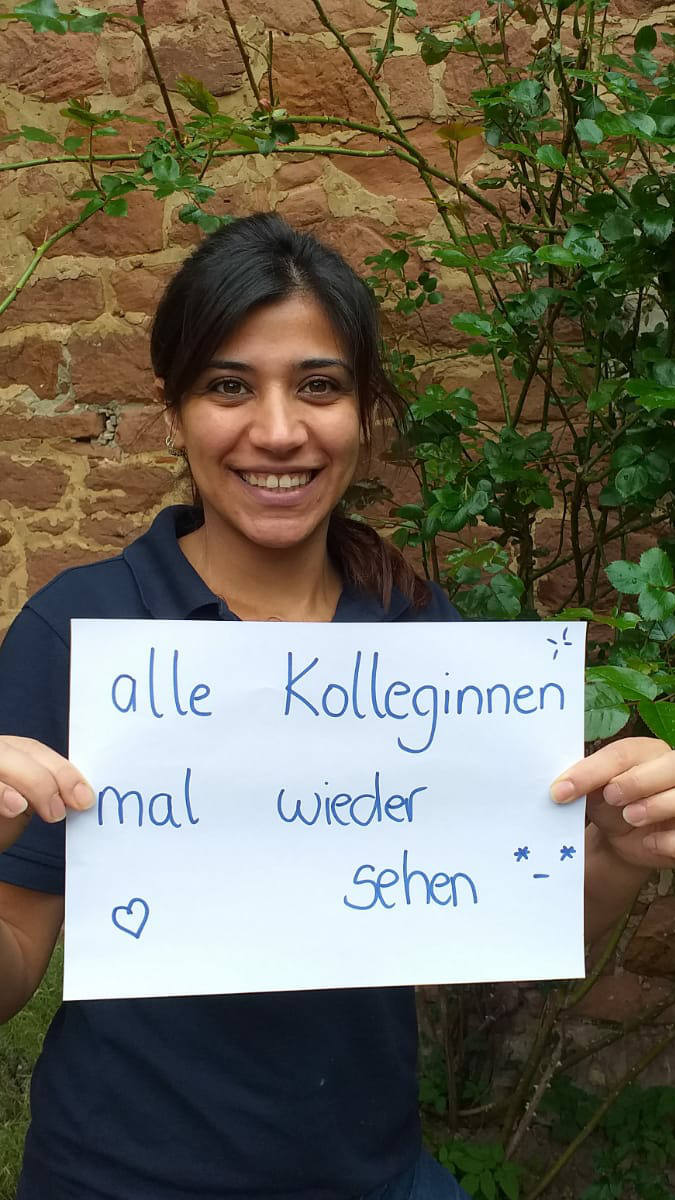 alle Kolleginnen
mal wieder
sehen *-*